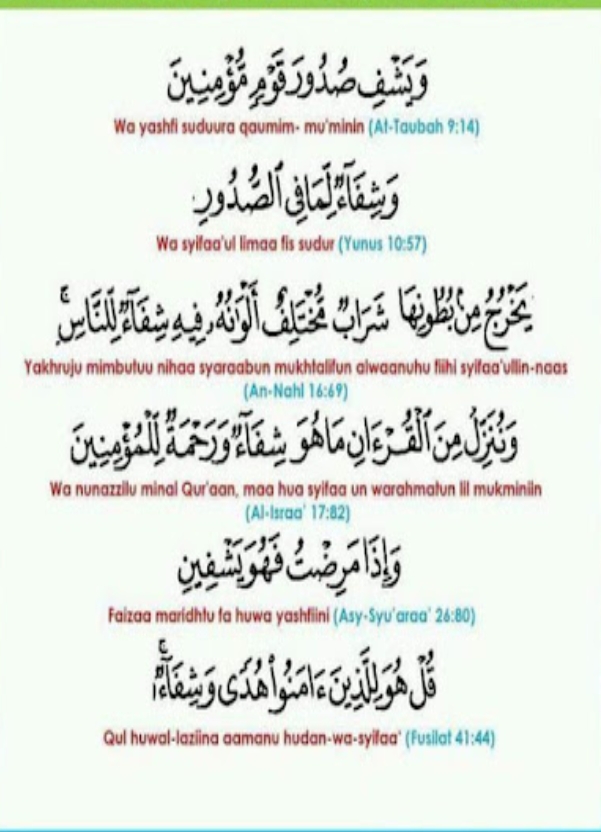 وَيَشْفِ صُدُورَ قَوْمٍ مُّؤْمِنِينَ
Wa yashfi suduura qaumim- mu'minin (At-Taubah 9:14)
وَشِفَآءٌ لِّمَا فِى ٱلصُّدُورِ
Wa syifaa'ul limaa fis sudur (Yunus 10:57)
يَخْرُجُ مِنۢ بُطُونِهَا شَرَابٌ مُّخْتَلِفٌ أَلْوَٰنُهُۥ فِيهِ شِفَآءٌ لِّلنَّاسِ ۗ
Yakhruju mimbutuu nihaa syaraabun mukhtalifun alwaanuhu fiihi syifaa'ullin-naas
(An-Nahl 16:69)
وَنُنَزِّلُ مِنَ ٱلْقُرْءَانِ مَا هُوَ شِفَآءٌ وَرَحْمَةٌ لِّلْمُؤْمِنِينَ
Wa nunazzilu minal Qur'aan, maa hua syifaa un warahmatun lil mukminiin
(Al-Israa' 17:82)
وَإِذَا مَرِضْتُ فَهُوَ يَشْفِينِ
Faizaa maridhtu fa huwa yashfiini (Asy-Syu'araa' 26:80)
قُلْ هُوَ لِلَّذِينَ ءَامَنُوا۟ هُدًى وَشِفَآءٌ ۖ
Qul huwal-laziina aamanu hudan-wa-syifaa' (Fusilat 41:44)